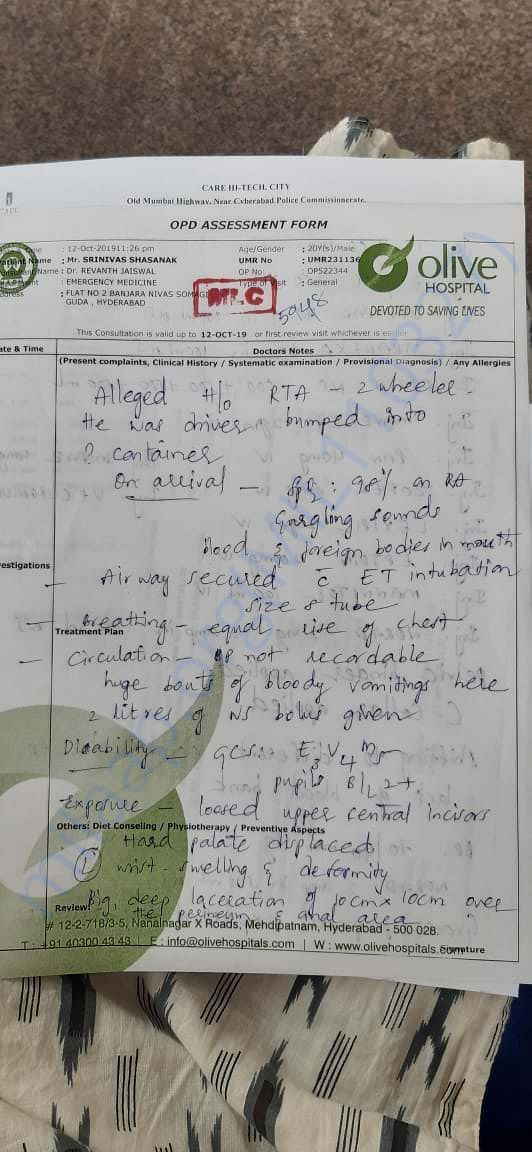 CARE HI-TECH. CITY
Old Mumbai Highway, Near Cyberabad Police Commissionerate,
OPD ASSESSMENT FORM
: 12-Oct-2019 11:26 pm
Age/Gender : 20Y(s)/Male
Name : Mr. SRINIVAS SHASANAK
UMR No : UMR231136
Name : Dr. REVANTH JAISWAL
OP No : OPS22344
: EMERGENCY MEDICINE
Type of Visit : General
: FLAT NO 2 BANJARA NIVAS
GUDA , HYDERABAD
MLC
olive
HOSPITAL
DEVOTED TO SAVING LIVES
This Consultation is valid up to 12-OCT-19 or first review visit whichever is earlier
ate & Time
Doctors Notes
(Present complaints, Clinical History / Systematic examination / Provisional Diagnosis) / Any Allergies
Alleged H/o RTA - 2 wheeler
He was driver bumped into
? container
On arrival - : 98% on RA
Gargling sounds
blood & foreign bodies in mouth
estigations
- Airway secured c̄ ET intubation
size 8 tube
- Breathing - equal rise of chest
Treatment Plan
- Circulation - BP not recordable
huge bouts of bloody vomitings here
2 litres of NS bolus given
Disability - GCS: E3 V4 M5
pupils B/L 2+
Exposure - loosed upper central incisors
Others: Diet Conseling / Physiotherapy / Preventive Aspects
Hard palate displaced
(L) wrist - swelling & deformity
Big, deep laceration of 10cm x 10cm over
Review:
the perineum & anal area
# 12-2-718/3-5, Nanalnagar X Roads, Mehdipatnam, Hyderabad - 500 028.
T : +91 40300 43 43 | E : info@olivehospitals.com | W : www.olivehospitals.com
Signature